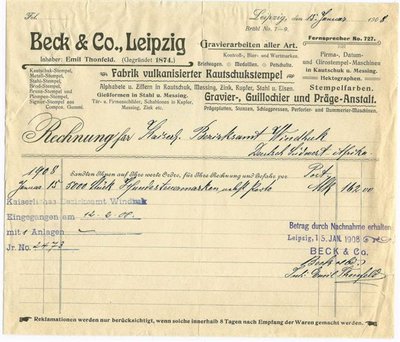 Fol.
Leipzig, den 15. Januar 1908
Brühl No. 7-9.
Beck & Co., Leipzig
Inhaber: Emil Thonfeld. (Gegründet 1874.)
Gravierarbeiten aller Art.
Kontroll-, Bier- und Wertmarken.
Briefwagen. Medaillen. Petschafte.
Fernsprecher No. 727.
Firma-, Datum-
und Girostempel-Maschinen
in Kautschuk u. Messing.
Hektographen.
Kautschuk-Stempel,
Metall-Stempel,
Stahl-Stempel,
Brod-Stempel,
Brenn-Stempel und
Plomben-Stempel,
Signier-Stempel aus
Compos. Gummi.
Fabrik vulkanisierter Kautschukstempel
Alphabete u. Ziffern in Kautschuk, Messing, Zink, Kupfer, Stahl u. Eisen.
Giesformen in Stahl u. Messing.
Tür- u. Firmaschilder, Schablonen in Kupfer,
Messing, Zink etc.
Stempelfarben.
Gravier-, Guillochier und Präge-Anstalt.
Prägeplatten, Stanzen, Schlagpressen, Perforier- und Nummerier-Maschinen.
Rechnung für Kaiserl. Bezirksamt Windhuk
Deutsch Südwest Afrika
1908
Sandten Ihnen auf Ihre werte Ordre, für Ihre Rechnung und Gefahr per Post
Januar 15 5000 Stück Hundesteuermarken nebst Porto Mk 162.00
Kaiserliches Bezirksamt Windhuk
Eingegangen am 12.6.08.
mit 1 Anlagen
Jr. No. 2473
Betrag durch Nachnahme erhalten
Leipzig, 15. JAN. 1908
BECK & Co.
Beck & Co.
Inh. Emil Thonfeld
Reklamationen werden nur berücksichtigt, wenn solche innerhalb 8 Tagen nach Empfang der Waren gemacht werden.